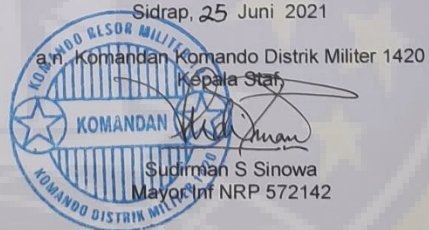 Sidrap, 25 Juni 2021
a.n. Komandan Komando Distrik Militer 1420
Kepala Staf,
Sudirman S Sinowa
Mayor Inf NRP 572142
KOMANDO RESOR MILITER
KOMANDAN
KOMANDO DISTRIK MILITER 1420